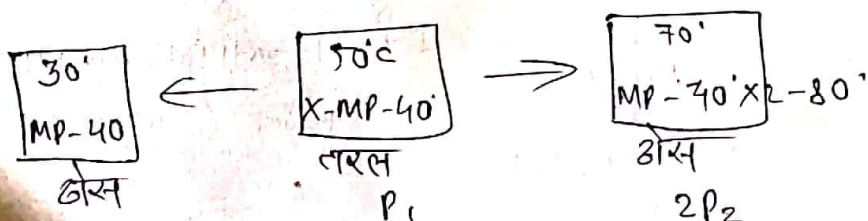 30°
MP-40
ठोस
50°C
X-MP-40°
तरल
P₁
70°
MP-40°X2-80°
ठोस
2P₂